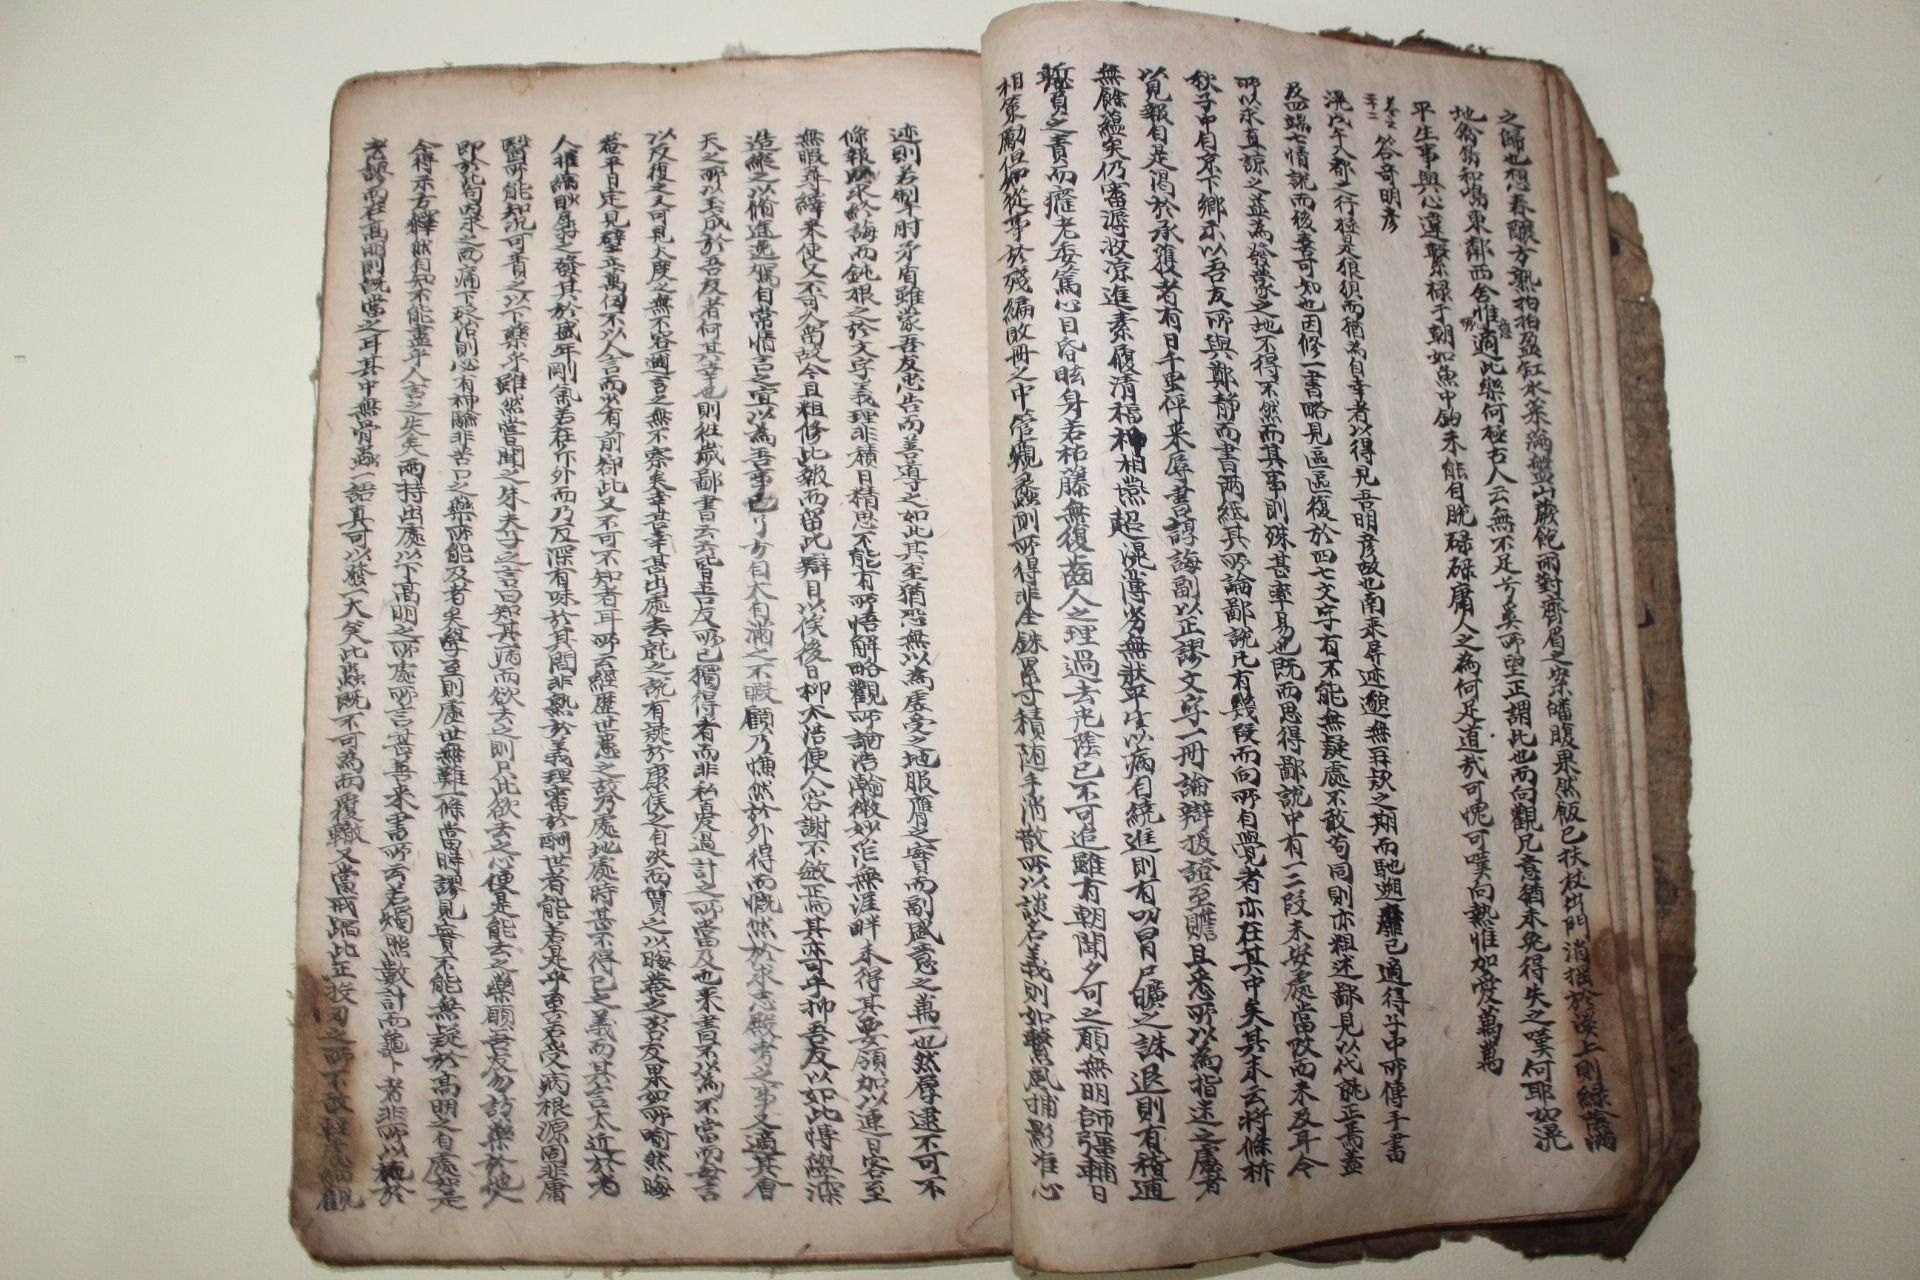 之歸也想春釀方熟拍拍盈缸水菜滿盤山蕨飽雨對齊眉之案皤腹果然飯已扶杖出門消搖於溪上則綠陰滿
地禽鳥和鳴東鄰西舍惟意所適此樂何極古人云無不足兮奚所望正謂此也而向觀兄意猶未免得失之嘆何耶如滉
平生事與心違繫祿于朝如魚中鉤未能自脫碌碌庸人之為何足道哉可愧可嘆向熱惟加愛萬萬
答奇明彦
滉戊午入都之行極是狼狽而猶為自幸者以得見吾明彦故也南來屏迹邈無再款之期而馳遡靡已適得子中所傳手書
及四端七情說而後喜可知也因修一書略見區區復於四七文字有不能無疑處不敢苟同則亦粗述鄙見以代就正焉蓋
所以求真諒之益為發蒙之地不得不然而其事則殊甚率易也既而思得鄙說中有一二段未安處當改而未及耳今
秋子中自京下鄉示以吾友所與鄭靜而書兩紙其所論鄙說凡有幾段而向所自覺者亦在其中矣其末云將條析
以見報自是渴於承獲者有日千里伻來辱書諄誨副以正謬文字一冊論辯援證至贍且悉所以為指迷之慮者
無餘蘊矣仍審潯收凉進素履清福神相黨超滉薄劣無狀平生以病自繞進則有叨冒尸曠之誅退則有稽逋
慙負之責而癃老委篤心目昏眩身若枯藤無復齒人之理過去光陰已不可追雖有朝聞夕可之願無明師強輔日
相策勵但細從事於殘編敗冊之中管窺蠡測所得非全銖累寸積隨手消散所以談名義則如繫風捕影准心
迹則若掣肘矛盾雖蒙吾友忠告而善導之如此其至猶恐無以為虛受之地服膺之實而副盛意之萬一也然辱逮不可不
條報踐求於誨而鈍根之於文字義理非積日精思不能有所悟解略觀所諭浩瀚微妙茫無涯畔未得其要領加以連日客至
無暇尋繹來使又不可久留故今且粗修此報而留此辯目以俟後日抑不浩使人容謝不敏正而其亦可乎抑吾友以如此博學深
造縱之以脩途逸駕自常情言之宜以為吾事已了方自大自滿之不暇顧乃慊然於外得而慨然於求志嚴考之事又適其會
天之所以玉成於吾友者何其幸也則往歲鄙書云云皆吾友所已獨得者而非私憂過計之所當及也來書不以為不當而吾言
以反復之又可見大度之無不容邇言之無不察矣幸甚幸甚出處去就之說有疑於康侯之自決而質之以晦菴之吉友果如所喻然晦
菴平日定見壁立萬仞不以人言而少有前却此又不可不知者耳所云經歷世患之故乃處地處時甚不得已之義而其言太近於老
人摧縮耿屏之發其於盛年剛氣若在所外而乃反深有味於其間非熟於義理審於酬世者能若是乎至若受病根源固非庸
醫所能知況可責之以下藥乎雖然嘗聞之朱夫子之言曰知其病而欲去之則只此欲去之心便是能去之藥願吾友勿訪藥於他人
即於此句內求之而痛下砭治則必有神驗非苦口之藥所能及者矣學至則處世無難一條當時謬見實不能無疑於高明之自處於是
今得示方釋然自知不能盡乎人言之失矣兩持出處以下高明之所處所言甚善來書所云若燭照數計而龜卜者非所以施於
老謬而在高明則旣當之耳其中無骨蟲一語真可以發一大笑此蟲旣不可為而覆轍又當戒蹈此正投刃之所不敢輕處細觀